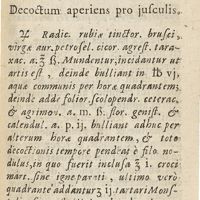 Decoctum aperiens pro jusculis.
℞ Radic. rubiæ tinctor. brusci,
virgæ aur. petrosel. cicor. agrest. tarax-
ac. a. ℥ ß. Mundentur, incidantur ut
artis est, deinde bulliant in ℔ vj.
aquæ communis per horæ quadrantem;
deinde adde folior. scolopendr. ceterac,
& agrimon. a. m. ß. flor. genist. &
calendul. a. p. ij. bulliant adhuc per
alterum horæ quadrantem, & toto
decoctionis tempore pendeat è filo no-
dulus, in quo fuerit inclusa ʒ i. croci
mart. sine igne parati, ultimo verò
quadrante addantur ʒ ij. tartari Mons-